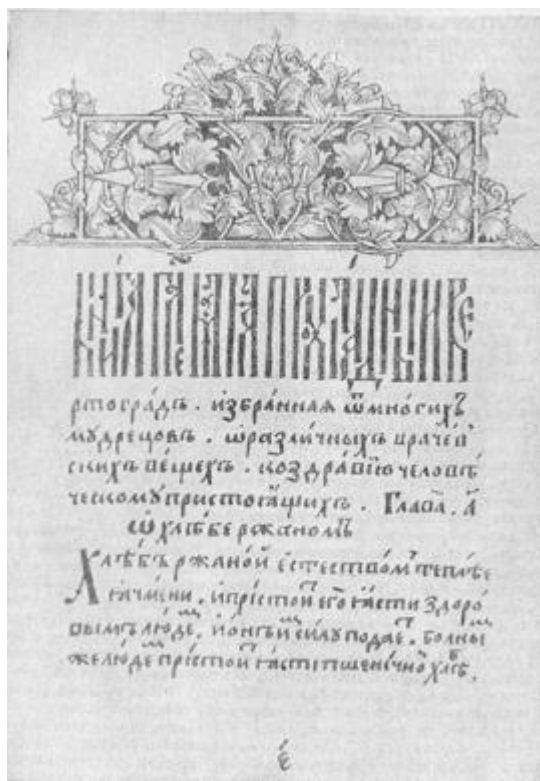 КНИГА ГЛЕМАѦ ПРОХЛАДНЫИ ВЕ
ртогра́дъ . избра́нная ѿмногихъ
мудрецовъ . ѡразли́чныхъ врачев
скихъ ве́щехъ . коздра́вїю человѣ
ческому пристоѧщихъ . Глава . а҃
ѡ хлѣбе ржаномъ
Хлѣбъ ржано́й есте́ством тепле́е
ꙗчмени . и при́стоит его ꙗсти здоро́
вымъ лю́дем , и о́нъ им си́лу подает . болны́м
же лю́дем при́стоит ꙗсти пшени́чно хлѣб .
є҃